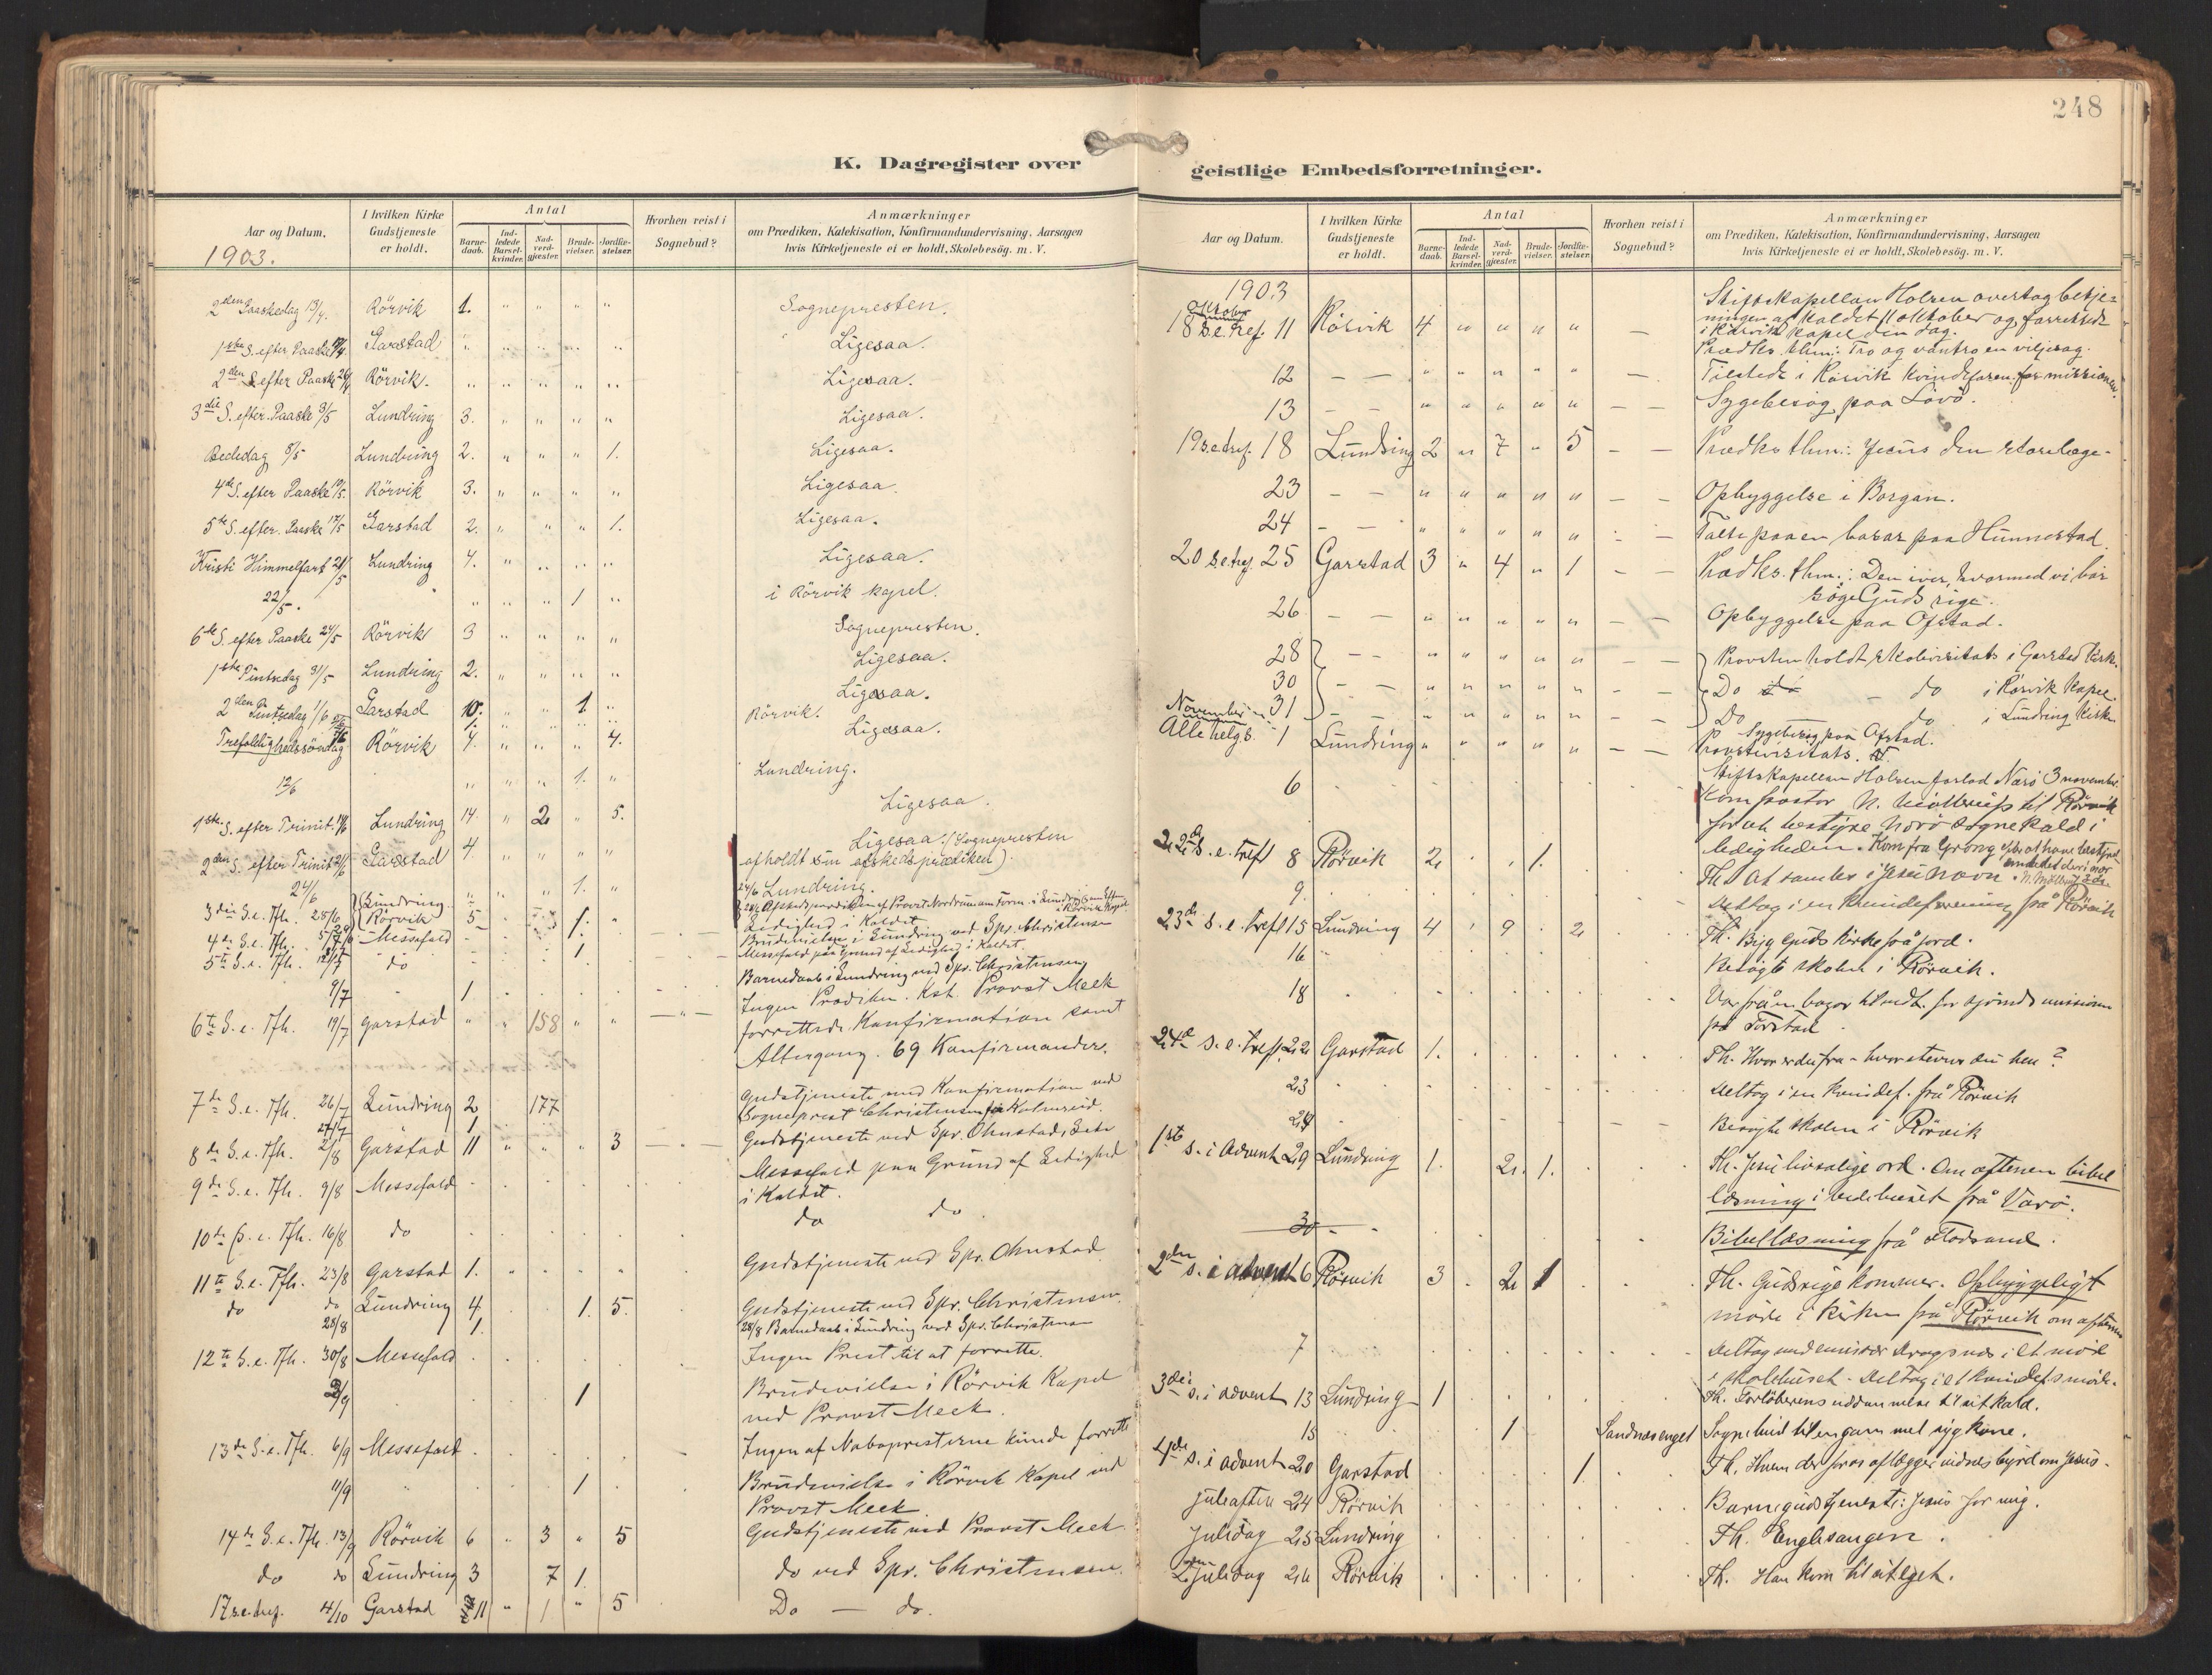 248
K. Dagregister over geistlige Embedsforretninger.
Aar og Datum. I hvilken Kirke Gudstjeneste er holdt. Antal Barnedaab. Indledede Barselkvinder. Nadverdgjæster. Brudevielser. Jordfæstelser. Hvorhen reist i Sognebud? Anmærkninger om Prædiken, Katekisation, Konfirmandundervisning, Aarsagen hvis Kirketjeneste ei er holdt, Skolebesög. m. V.
1903.
2den Paaskedag 13/4. Rörvik 1. " " " " Sognepresten.
1ste S. efter Paaske 19/4 Garstad " " " " " Ligesaa.
2den S. efter Paaske 26/4 Rörvik. " " " " " Ligesaa.
3die S. efter Paaske 3/5 Lundring 3. " " " " Ligesaa.
Bededag 8/5 Lundring 2. " " " 1. Ligesaa.
4de S. efter Paaske 10/5. Rörvik 3. " " " " Ligesaa.
5te S. efter Paaske 17/5 Garstad 2. " " " 1. Ligesaa.
Kristi Himmelfart 21/5 Lundring 4. " " " " Ligesaa.
22/5. " " " " 1 " i Rörvik kapel.
6te S. efter Paaske 24/5 Rörvik 3 " " " " Sognepresten.
1ste Pintsedag 31/5 Lundring 2. " " " " Ligesaa.
2den Pintsedag 1/6 Garstad 10. " " 1 " Ligesaa.
Rörvik.
Trefoldighedssöndag 7/6 Rörvik 4. " " " 4. Ligesaa.
12/6 " " " 1. " Lundring.
1ste S. efter Trinit. 14/6 Lundring 14. " 2 " 5. Ligesaa.
2den S. efter Trinit 21/6 Garstad 4. " " " " Ligesaa. (Sognepresten
afholdt sin afskedsprædiken).
24/6 " " " 1. " 24/6 Lundring.
3die S. e. Tfh. 28/6 Lundring Rörvik 5 28/6 Afskedsprædiken af Provst Nordrum
Ledighed i Kaldet
4de S. e. Tfh. 5/7 Messefald 1. Brudevielse i Lundring ved Spr. Christensen
5te S. e. Tfh. 12/7 do 1 Messefald paa Grund af Ledighed i Kaldet.
9/7 1 Barnedaab i Lundring ved Spr. Christensen
6te S. e. Tfh. 19/7 Garstad " " 158 " " Ingen Prædiken. Kst. Provst Meek
forrettede Konfirmation samt
Altergang. 69 Konfirmander.
7de S. e. Tfh. 26/7 Lundring 2 177 Gudstjeneste med Konfirmation ved
27/7 1 Sogneprest Christensen
8de S. e. Tfh. 2/8 Garstad 11 " " " 3 Gudstjeneste ved Spr. Ohnstad,
9de S. e. Tfh. 9/8 Messefald Messefald paa Grund af Ledighed
i Kaldet.
10de S. e. Tfh. 16/8 do do do
11te S. e. Tfh. 23/8 Garstad 1. Gudstjeneste ved Spr. Ohnstad
do do Lundring 4 1. 5. Gudstjeneste ved Spr. Christensen.
28/8 1. 28/8 Barnedaab i Lundring ved Spr. Christensen
12te S. e. Tfh. 30/8 Messefald Ingen Prest til at forrette.
2/9 1 Brudevielse i Rörvik Kapel
ved Provst Meek.
13de S. e. Tfh. 6/9 Messefald Ingen af Nabopresterne kunde forrette
11/9 1 Brudevielse i Rörvik Kapel ved
Provst Meek
14de S. e. Tfh. 13/9 Rörvik 6 " 3 " 5 Gudstjeneste ved Provst Meek.
do do Lundring 3 7 1. do ved Spr. Christensen.
17 s.e.tref. 4/10 Garstad 11 " 1 " 5 Do — do.
Aar og Datum. I hvilken Kirke Gudstjeneste er holdt. Antal Barnedaab. Indledede Barselkvinder. Nadverdgjæster. Brudevielser. Jordfæstelser. Hvorhen reist i Sognebud? Anmærkninger om Prædiken, Katekisation, Konfirmandundervisning, Aarsagen hvis Kirketjeneste ei er holdt, Skolebesög. m. V.
1903
Oktober
18 s.e.tref. 11 Rörvik 4 " " " " — Stiftskapellan Holsen overtog betje-
ningen af kaldet 11 oktober og forrettede
i Rörvik kapel den dag.
Prædks. thm: Tro og vantro en viljesag.
12 — — " " " " " — Tilstede i Rörvik kvindeforen. for missionen.
13 — — " " " " " — — Sygebesög paa Lövö.
19 s.e.tref. 18 Lundring 2 " 7 " 5 — — Prædks thm: Jesus den store læge.
23 — — " " " " " — — Opbyggelse i Borgan.
24 — — " " " " " — — Talte paa en basar paa Hunnestad.
20 s.e.tref. 25 Garstad 3 " 4 " 1 — — Prædks. thm.: Den iver, hvormed vi bör
söge Guds rige.
26 — — " " " " " — — Opbyggelse paa Ofstad.
28 — — " " " " " — — Provsten holdt skolevisitats i Garstad kirk.
30 — — " " " " " — — Do — do i Rörvik kapel.
31 — — " " " " " — — Do do i Lundring kirke
Sygebesög paa Ofstad.
November
Alle helg s. 1 Lundring " " " " " — — Provstevisitats.
6 Stiftskapellan Holsen forlod Nærö 3 november.
Kom pastor N. til Rörvik
for at bestyre Nærö sognekald i
ledigheden. Kom fra Grong efter at have bestyret
embedet
22de S. e. tref 8 Rörvik 2 1. Th. At samles i Jesu navn.
9. Deltog i en kvindeforening på Rörvik
23de S. e. tref 15 Lundring 4 9 2 Th. Byg Guds kirke på jord.
16 Besögte skolen i Rörvik.
18 Var på en bazar for missionen
på
24de s. e. tref. 22 Garstad 1. Th. Hvor er du fra - hvor stevner du hen?
23 Deltog i en kvindef. på Rörvik
24 Besögte skolen i Rörvik
1ste s. i Advent 29 Lundring 1. 2. 1. Th. Jesu livsalige ord. Om aftenen bibel
læsning i bedehuset på Værö.
30 Bibellæsning på Flosand.
2den s. i advent 6 Rörvik 3 2 1 Th. Guds rige kommer. Opbyggeligt
möde i kirken på Rörvik om aftenen
7 Deltog med i et möde
i skolehuset. Deltog i et kvindefs möde.
3die s. i advent 13 Lundring 1 Th. Forlöberens uddannelse til sit kald.
15 1 Sandnesenget Sognebud til en gammel syg kone.
4de s. i advent 20 Garstad 1. Th. Hvem der for os aflægger vidnesbyrd om Jesus.
Juleaften 24 Rörvik Barnegudstjeneste: Jesus for mig.
Juledag 25 Lundring Th. Englesangen.
2den Juledag 26 Rörvik Th. Han kom til sit eget.